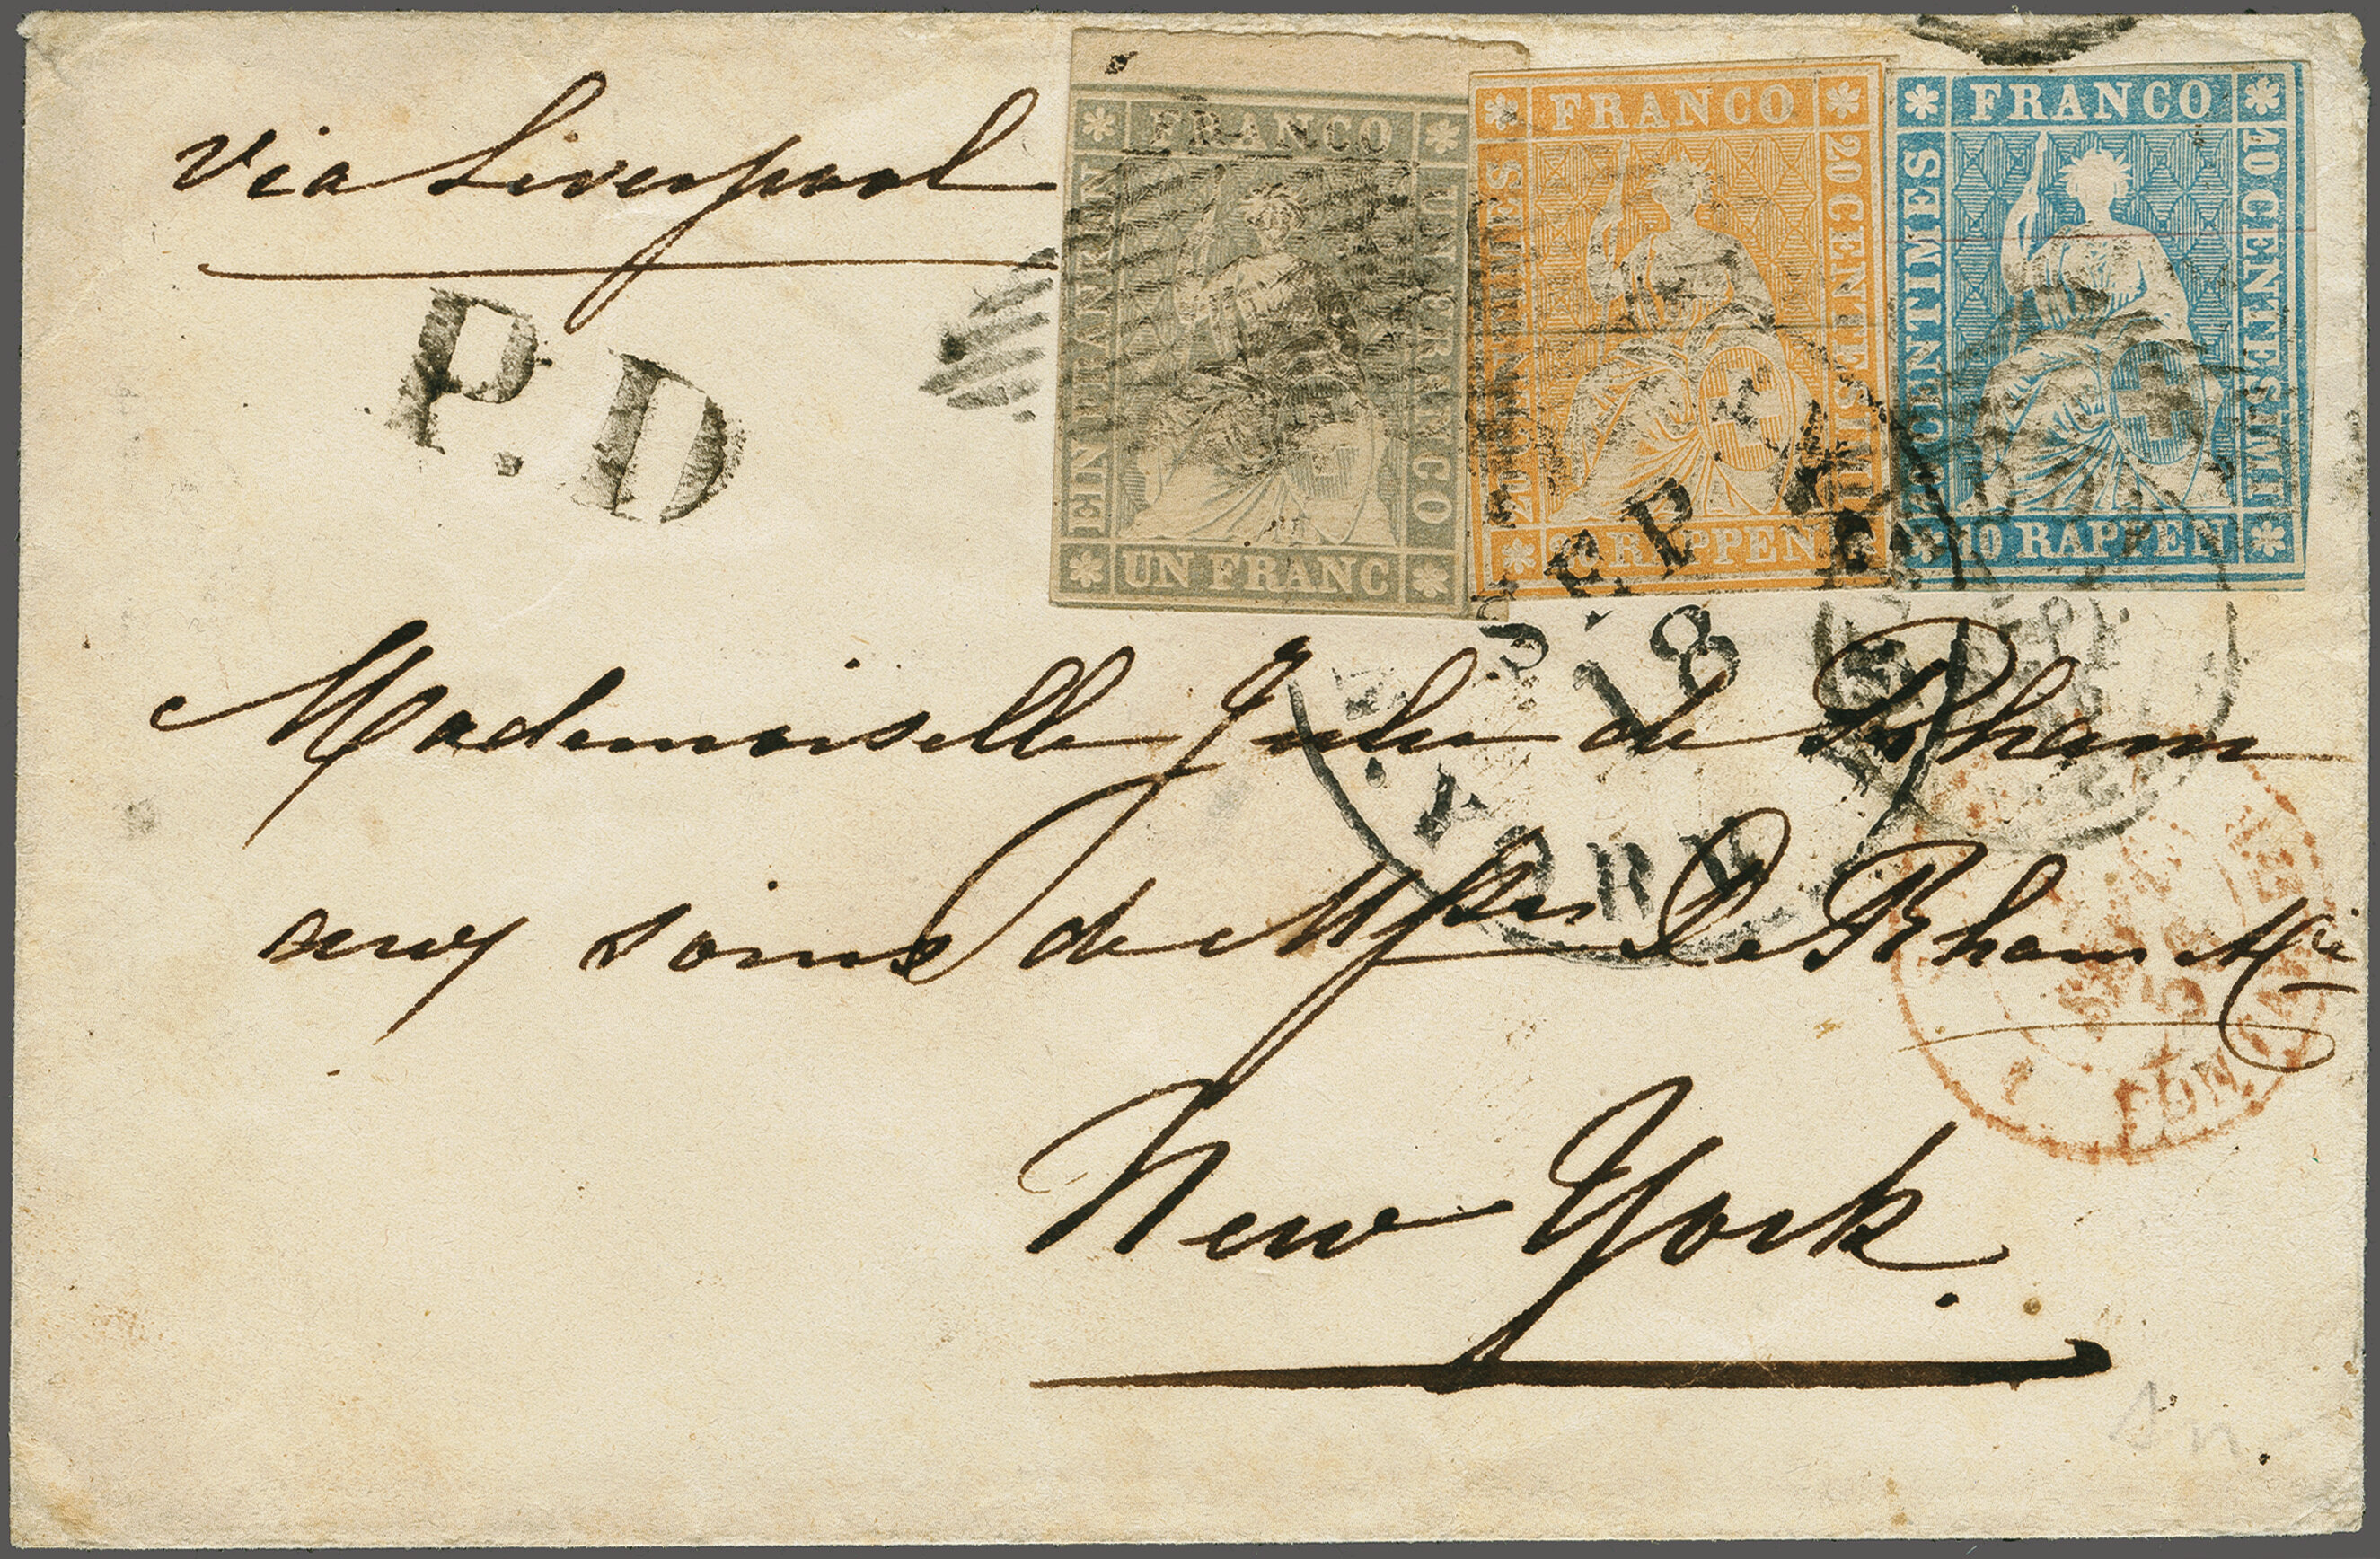 via Liverpool
P.D
FRANCO
EIN FRANKEN
UN FRANCO
UN FRANC
FRANCO
20 CENTIMES
20 CENTESIMI
20 RAPPEN
FRANCO
10 CENTIMES
10 CENTESIMI
10 RAPPEN
SEP
18
YORK
Mademoiselle Julie de Rham
aux soins de Mssrs De Rham & Cie
LONDON
5
New York.